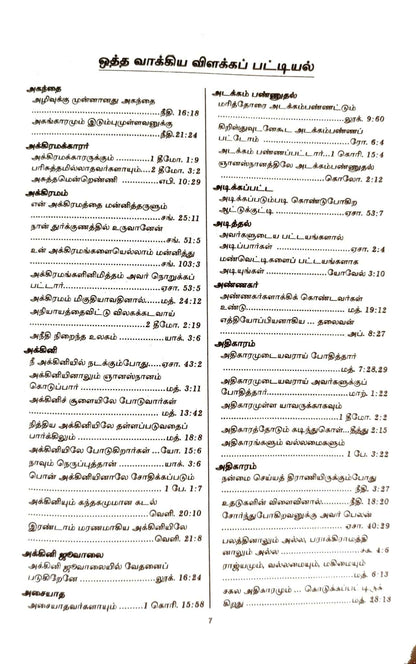 ஒத்த வாக்கிய விளக்கப் பட்டியல்
அகந்தை
அழிவுக்கு முன்னானது அகந்தை
................நீதி. 16:18
அகங்காரமும் இடும்புமுள்ளவனுக்கு
................நீதி.21:24
அக்கிரமக்காரர்
அக்கிரமக்காரருக்கும் ..........1 தீமோ. 1:9
பரிசுத்தமில்லாதவர்களாயும்....2 தீமோ. 3:2
அசுத்தமென்றெண்ணி ........எபி. 10:29
அக்கிரமம்
என் அக்கிரமத்தை மன்னித்தருளும்
................சங். 25:11
நான் துர்க்குணத்தில் உருவானேன்
................சங். 51:5
உன் அக்கிரமங்களையெல்லாம் மன்னித்து
................சங். 103:3
அக்கிரமங்களினிமித்தம் அவர் நொறுக்கப்
பட்டார்................ஏசா. 53:5
அக்கிரமம் மிகுதியாவதினால்......மத். 24:12
அநியாயத்தைவிட்டு விலகக்கடவாய்
................2 தீமோ. 2:19
அநீதி நிறைந்த உலகம் ............யாக். 3:6
அக்கினி
நீ அக்கினியில் நடக்கும்போது.....ஏசா. 43:2
அக்கினியினாலும் ஞானஸ்நானம்
கொடுப்பார் ................மத். 3:11
அக்கினிச் சூளையிலே போடுவார்கள்
................மத். 13:42
நித்திய அக்கினியிலே தள்ளப்படுவதைப்
பார்க்கிலும் ................மத். 18:8
அக்கினியிலே போடுகிறார்கள் ...யோ. 15:6
நாவும் நெருப்புத்தான் ............யாக். 3:6
பொன் அக்கினியினாலே சோதிக்கப்படும்
................1 பே. 1:7
அக்கினியும் கந்தகமுமான கடல்
................வெளி. 20:10
இரண்டாம் மரணமாகிய அக்கினியிலே
................வெளி. 21:8
அக்கினி ஜூவாலை
அக்கினி ஜூவாலையில் வேதனைப்
படுகிறேனே ................லூக். 16:24
அசையாத
அசையாதவர்களாயும் ........1 கொரி. 15:58
அடக்கம் பண்ணுதல்
மரித்தோரை அடக்கம்பண்ணட்டும்
................லூக். 9:60
கிறிஸ்துவுடனேகூட அடக்கம்பண்ணப்
பட்டோம் ................ரோ. 6:4
அடக்கம் பண்ணப்பட்டார்...1 கொரி. 15:4
ஞானஸ்நானத்திலே அடக்கம்பண்ணுதல்
................கொலோ. 2:12
அடிக்கப்பட்ட
அடிக்கப்படும்படி கொண்டுபோகிற
ஆட்டுக்குட்டி ................ஏசா. 53:7
அடித்தல்
அவர்களுடைய பட்டயங்களால்
அடிப்பார்கள் ................ஏசா. 2:4
மண்வெட்டிகளைப் பட்டயங்களாக
அடியுங்கள் ................யோவேல் 3:10
அண்ணகர்
அண்ணகர்களாக்கிக் கொண்டவர்கள்
உண்டு................மத். 19:12
எத்தியோப்பியனாகிய ... தலைவன்
................அப். 8:27
அதிகாரம்
அதிகாரமுடையவராய் போதித்தார்
................மத். 7:28,29
அதிகாரமுடையவராய் அவர்களுக்குப்
போதித்தார்................மாற். 1:22
அதிகாரமுள்ள யாவருக்காகவும்
................1 தீமோ. 2:2
அதிகாரத்தோடும் கடிந்துகொள்...தீத்து 2:15
அதிகாரங்களும் வல்லமைகளும்
................1 பே. 3:22
அதிகாரம்
நன்மை செய்யத் திராணியிருக்கும்போது
................நீதி. 3:27
உதடுகளின் விளைவினால்.........நீதி. 18:20
சோர்ந்துபோகிறவனுக்கு அவர் பெலன்
................ஏசா. 40:29
பலத்தினாலும் அல்ல, பராக்கிரமத்தி
னாலும் அல்ல ................சக. 4:6
ராஜ்யமும், வல்லமையும், மகிமையும்
................மத். 6:13
சகல அதிகாரமும் ... கொடுக்கப்பட்டிருக்
கிறது ................மத். 28:18
7